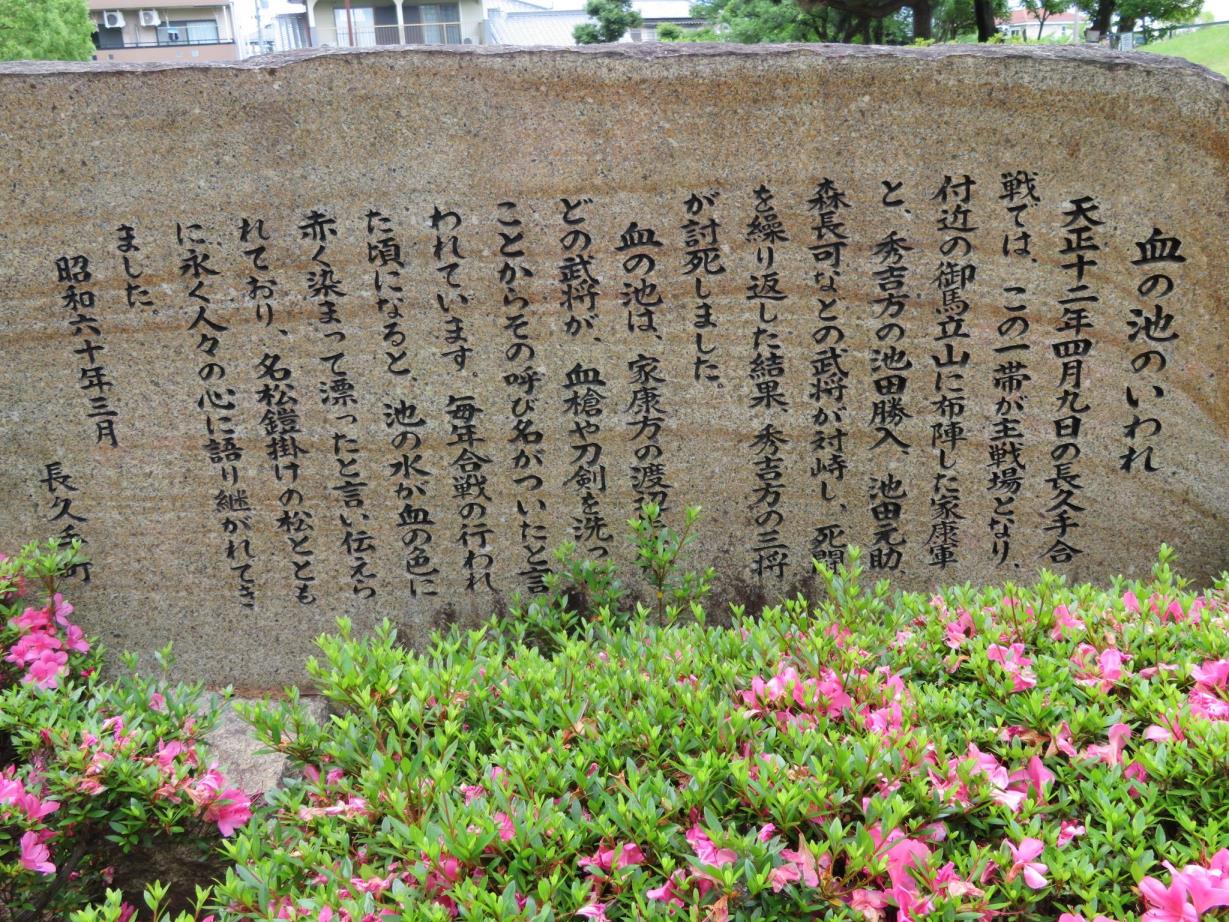 血の池のいわれ
天正十二年四月九日の長久手合
戦では、この一帯が主戦場となり、
付近の御馬立山に布陣した家康軍
と、秀吉方の池田勝入、池田元助、
森長可などの武将が対峙し、死闘
を繰り返した結果、秀吉方の三将
が討死しました。
血の池は、家康方の渡辺
どの武将が、血槍や刀剣を洗っ
ことからその呼び名がついたと言
われています。毎年合戦の行われ
た頃になると、池の水が血の色に
赤く染まって漂ったと言い伝えら
れており、名松鎧掛けの松ととも
に永く人々の心に語り継がれてき
ました。
昭和六十年三月
長久手町